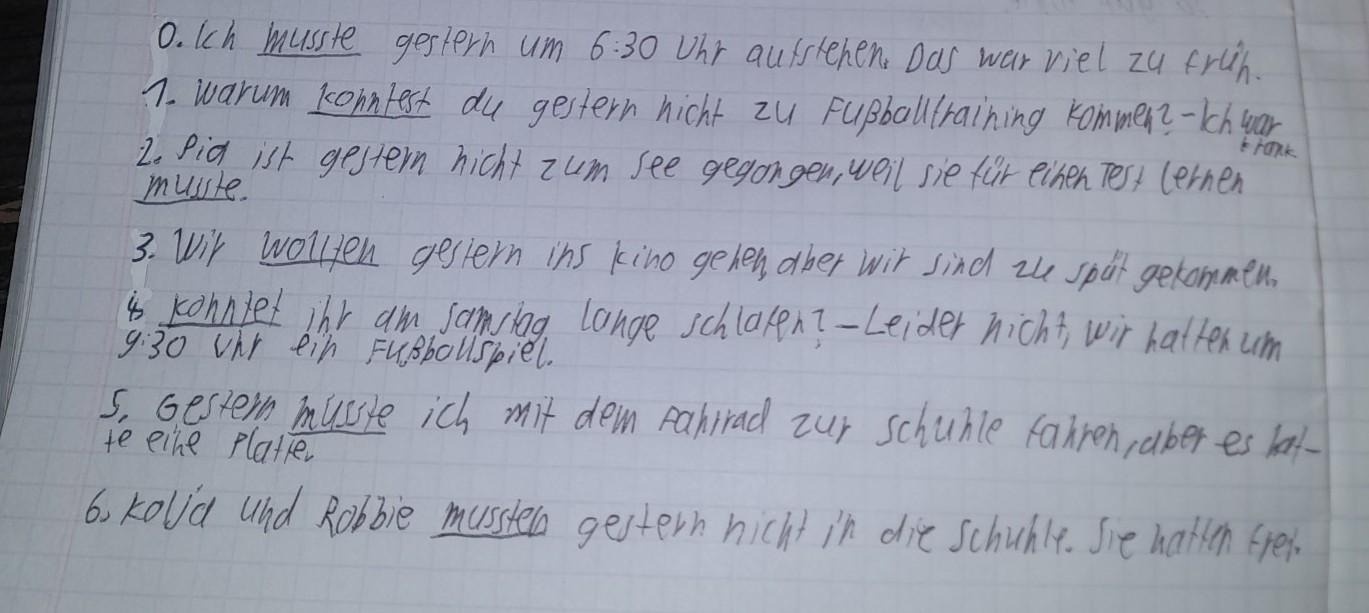 0. Ich musste gestern um 6:30 Uhr aufstehen. Das war viel zu früh.
1. warum konntest du gestern nicht zu Fußballtraining kommen? - Ich war
krank
2. Pia ist gestern nicht zum see gegangen, weil sie für einen Test lernen
musste.
3. Wir wollten gestern ins kino gehen, aber wir sind zu spät gekommen.
4. konntet ihr am samstag lange schlafen? - Leider nicht, wir hatten um
9:30 Uhr ein Fußballspiel.
5. Gestern musste ich mit dem Fahrrad zur schuhle fahren, aber es hat-
te eine Platte.
6. Kolja und Robbie mussten gestern nicht in die schuhle. Sie hatten frei.